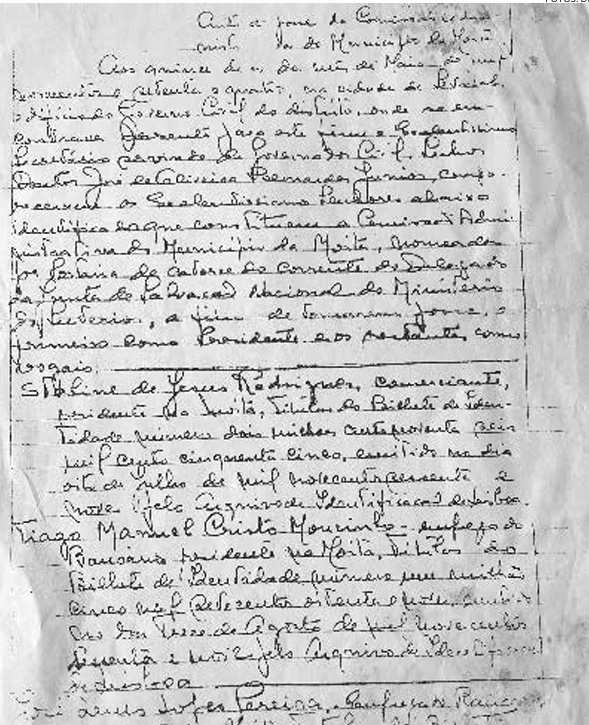 Auto de posse da Comissão Admi-
nistrativa do Município da Moita
Aos quinze de do mês de Maio de mil
novecentos e setenta e quatro, na cidade de Setúbal,
edifício do Governo Civil do distrito, onde se en-
contrava presente para este fim o Excelentíssimo
Secretário servindo de Governador Civil, Senhor
Doutor José de Oliveira Fernandes Junior, compa-
receram os Excelentíssimos Senhores abaixo
identificados que constituem a Comissão Admi-
nistrativa do Município da Moita, nomeada
por Portaria de catorze do corrente do Delegado
da Junta de Salvação Nacional do Ministério
do Interior, a fim de tomarem posse, o
primeiro como Presidente e os restantes como
vogais.
Staline de Jesus Rodrigues, comerciante,
residente na Moita, titular do Bilhete de Iden-
tidade número dois milhões cento noventa seis
mil cento cinquenta cinco, emitido no dia
oito de Julho de mil novecentos sessenta e
nove pelo Arquivo de Identificação de Lisboa.
Tiago Manuel Cristo Mourinho - empregado
Bancário residente na Moita, titular do
Bilhete de Identidade número um milhão
cinco mil setecentos oitenta e nove, emiti-
do aos treze de Agosto de mil novecentos
e pelo Arquivo de Identificação
de Lisboa
José Lopes Pereira, Empregado Banc